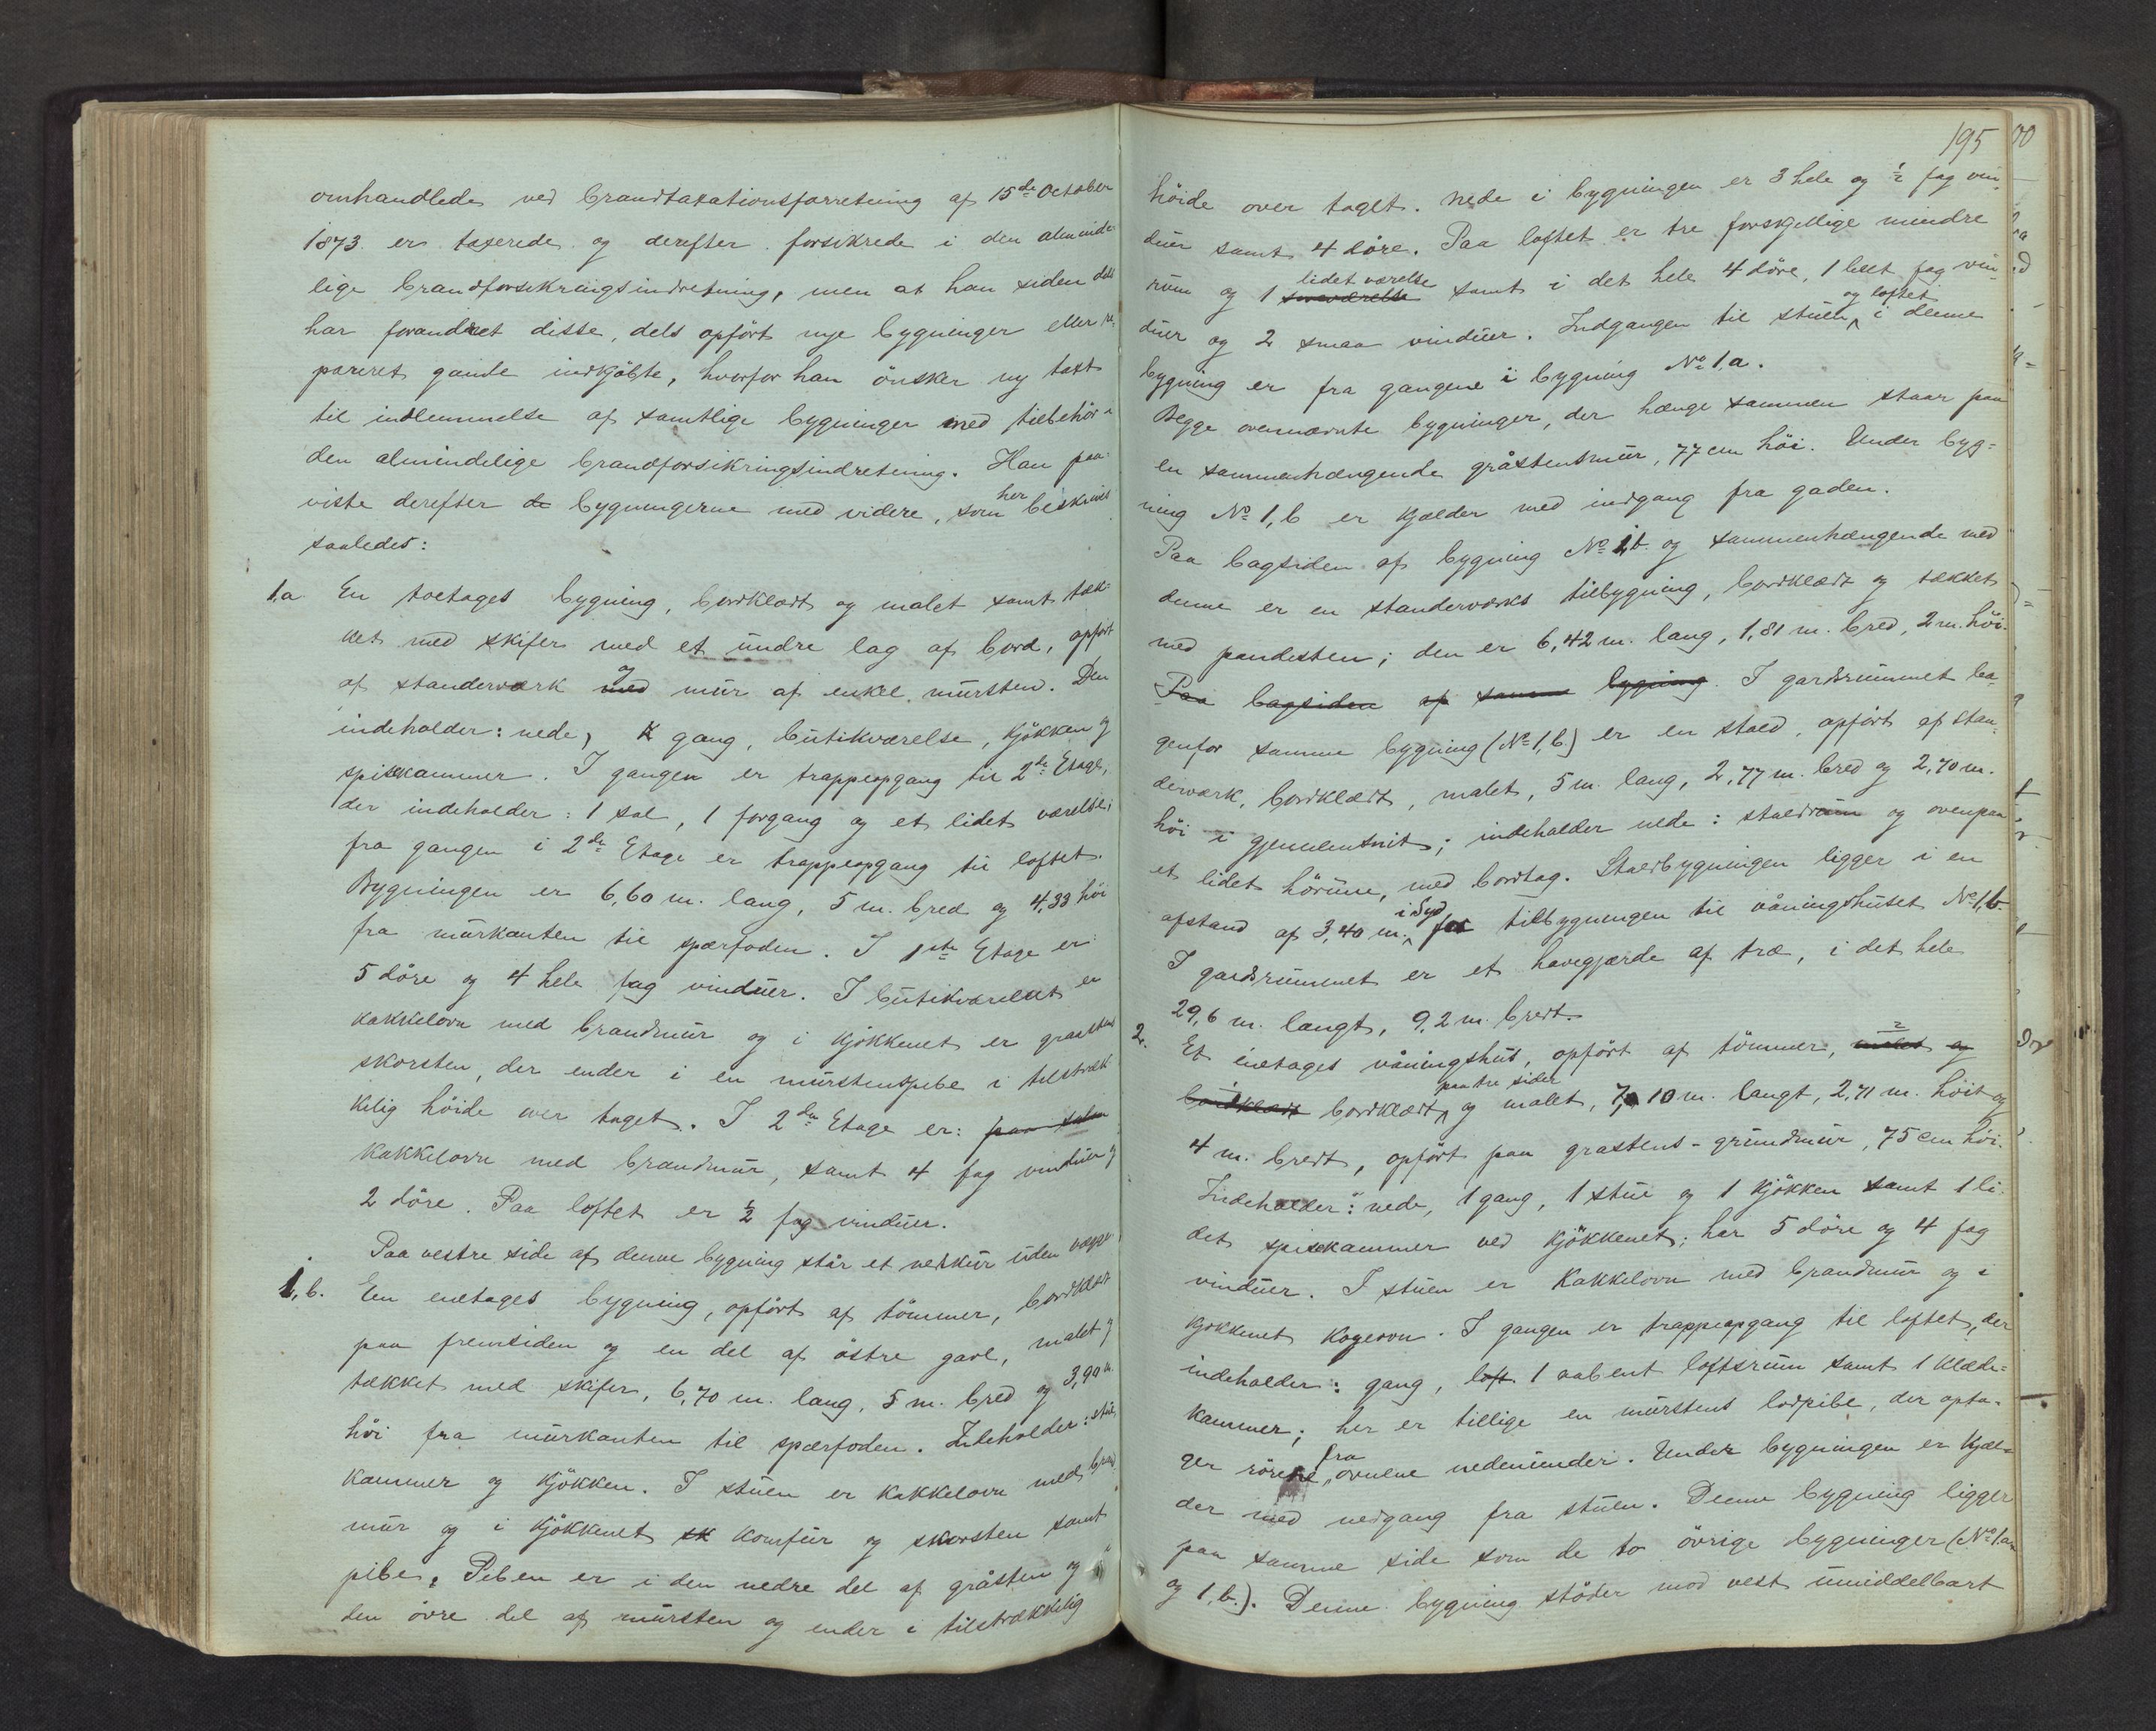 omhandlede ved brandtaxationsforretning af 15de October
1873 er taxerede og derefter forsikrede i den alminde-
lige brandforsikringsindretning, men at han siden dels
har forandret disse, dels opført nye bygninger eller re-
pareret gamle indkjøbte, hvorfor han ønsker ny taxt
til indlemmelse af samtlige bygninger med tilbehör i
den almindelige brandforsikringsindretning. Han paa-
viste derefter de bygningerne med videre, som her beskrives
saaledes:
1.a En toetages bygning, bordklædt og malet samt tæk-
ket med skifer med et undre lag af bord, opført
af standerværk med og mur af enkel mursten. Den
indeholder: nede, gang, butikværelse, kjøkken og
spisekammer. I gangen er trappeopgang til 2den Etage,
der indeholder: 1 sal, 1 forgang og et lidet værelse;
fra gangen i 2den Etage er trappeopgang til loftet.
Bygningen er 6,60 m. lang, 5 m. bred og 4,33 høi
fra murkanten til spærfoden. I 1ste Etage er
5 døre og 4 hele fag vinduer. I butikværelset er
kakkelovn med brandmur og i kjøkkenet er graastens
skorsten, der ender i en murstenspibe i tilstræk-
kelig høide over taget. I 2den Etage er: paa salen
kakkelovn med brandmur, samt 4 fag vinduer og
2 döre. Paa loftet er 1/2 fag vinduer.
Paa vestre side af denne bygning står et vedskur uden vægge
1,b. En enetages bygning, opført af tømmer, bordklædt
paa fremsiden og en del af østre gavl, malet og
tækket med skifer, 6,70 m. lang, 5 m. bred og 3,90 m.
høi fra murkanten til spærfoden. Indeholder: stue
kammer og kjøkken. I stuen er kakkelovn med brand
mur og i kjøkkenet sk komfur og skorsten samt
pibe. Piben er i den nedre del af gråsten og i
den övre del af mursten og ender i tilstrækkelig
195
höide over taget. Nede i bygningen er 3 hele og 1/2 fag vin-
duer samt 4 döre. Paa loftet er tre forskjellige mindre
rum og 1 lidet værelse samt i det hele 4 döre, 1 helt fag vin-
duer og 2 smaa vinduer. Indgangen til stuen og loftet i denne
bygning er fra gangene i bygning No 1.a.
Begge ovennævnte bygninger, der hænge sammen staar paa
en sammenhængende gråstensmur, 77 cm höi. Under byg-
ning No 1,b er kjælder med indgang fra gaden.
Paa bagsiden af bygning No 1,b. og sammenhængende med
denne er en standerværks tilbygning, bordklædt og tækket
med pandesten; den er 6,42 m. lang, 1,81 m. bred, 2 m. höi.
Paa bagsiden af samme bygning. I gardsrummet ba-
genfor samme bygning (No 1,b.) er en stald, opført af stan-
derværk, bordklædt, malet, 5 m. lang, 2,77 m. bred og 2,70 m.
höi i gjennemsnit; indeholder nede: staldrum og ovenpaa
et lidet hörum, med bordtag. Staldbygningen ligger i en
afstand af 3,40 m. i Syd for tilbygningen til våningshuset No 1,b.
I gardsrummet er et havegjærde af træ, i det hele
29,6 m. langt, 9,2 m. bredt.
2. Et enetages våningshus, opført af tömmer, malet og
bordklædt bordklædt paa tre sider og malet, 7,10 m. langt, 2,71 m. höit og
4 m. bredt, opført paa grastens-grundmur, 75 cm höi.
Indeholder: nede, 1 gang, 1 stue og 1 kjökken samt 1 li-
det spisekammer ved kjökkenet; har 5 döre og 4 fag
vinduer. I stuen er kakkelovn med brandmur og i
kjøkkenet kogeovn. I gangen er trappeopgang til loftet, der
indeholder: gang, loft 1 aabent loftsrum samt 1 klæde-
kammer; her er tillige en murstens lodpibe, der opta-
ger rörene fra ovnene nedenunder. Under bygningen er kjæl-
der med nedgang fra stuen. Denne bygning ligger
paa samme side som de to övrige bygninger (No 1,a
og 1,b.). Denne bygning stöder mod vest umiddelbart